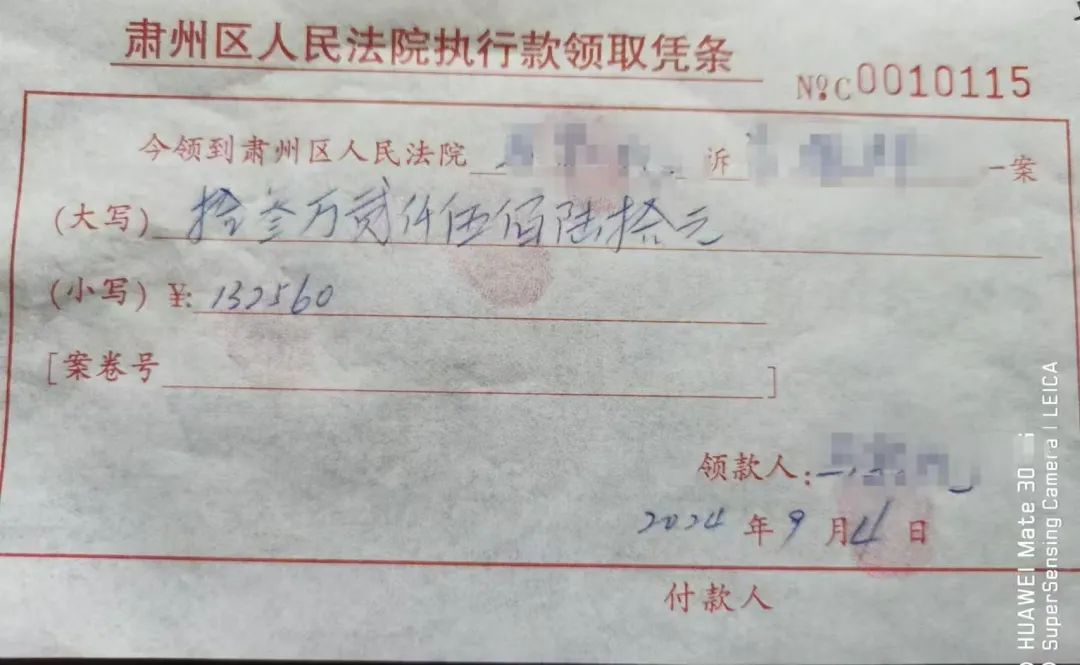 肃州区人民法院执行款领取凭条
№C0010115
今领到肃州区人民法院 诉 一案
(大写) 拾叁万贰仟伍佰陆拾元
(小写) ¥: 132560
[案卷号 ]
领款人:
2024年9月4日
付款人
HUAWEI Mate 30
SuperSensing Camera | LEICA